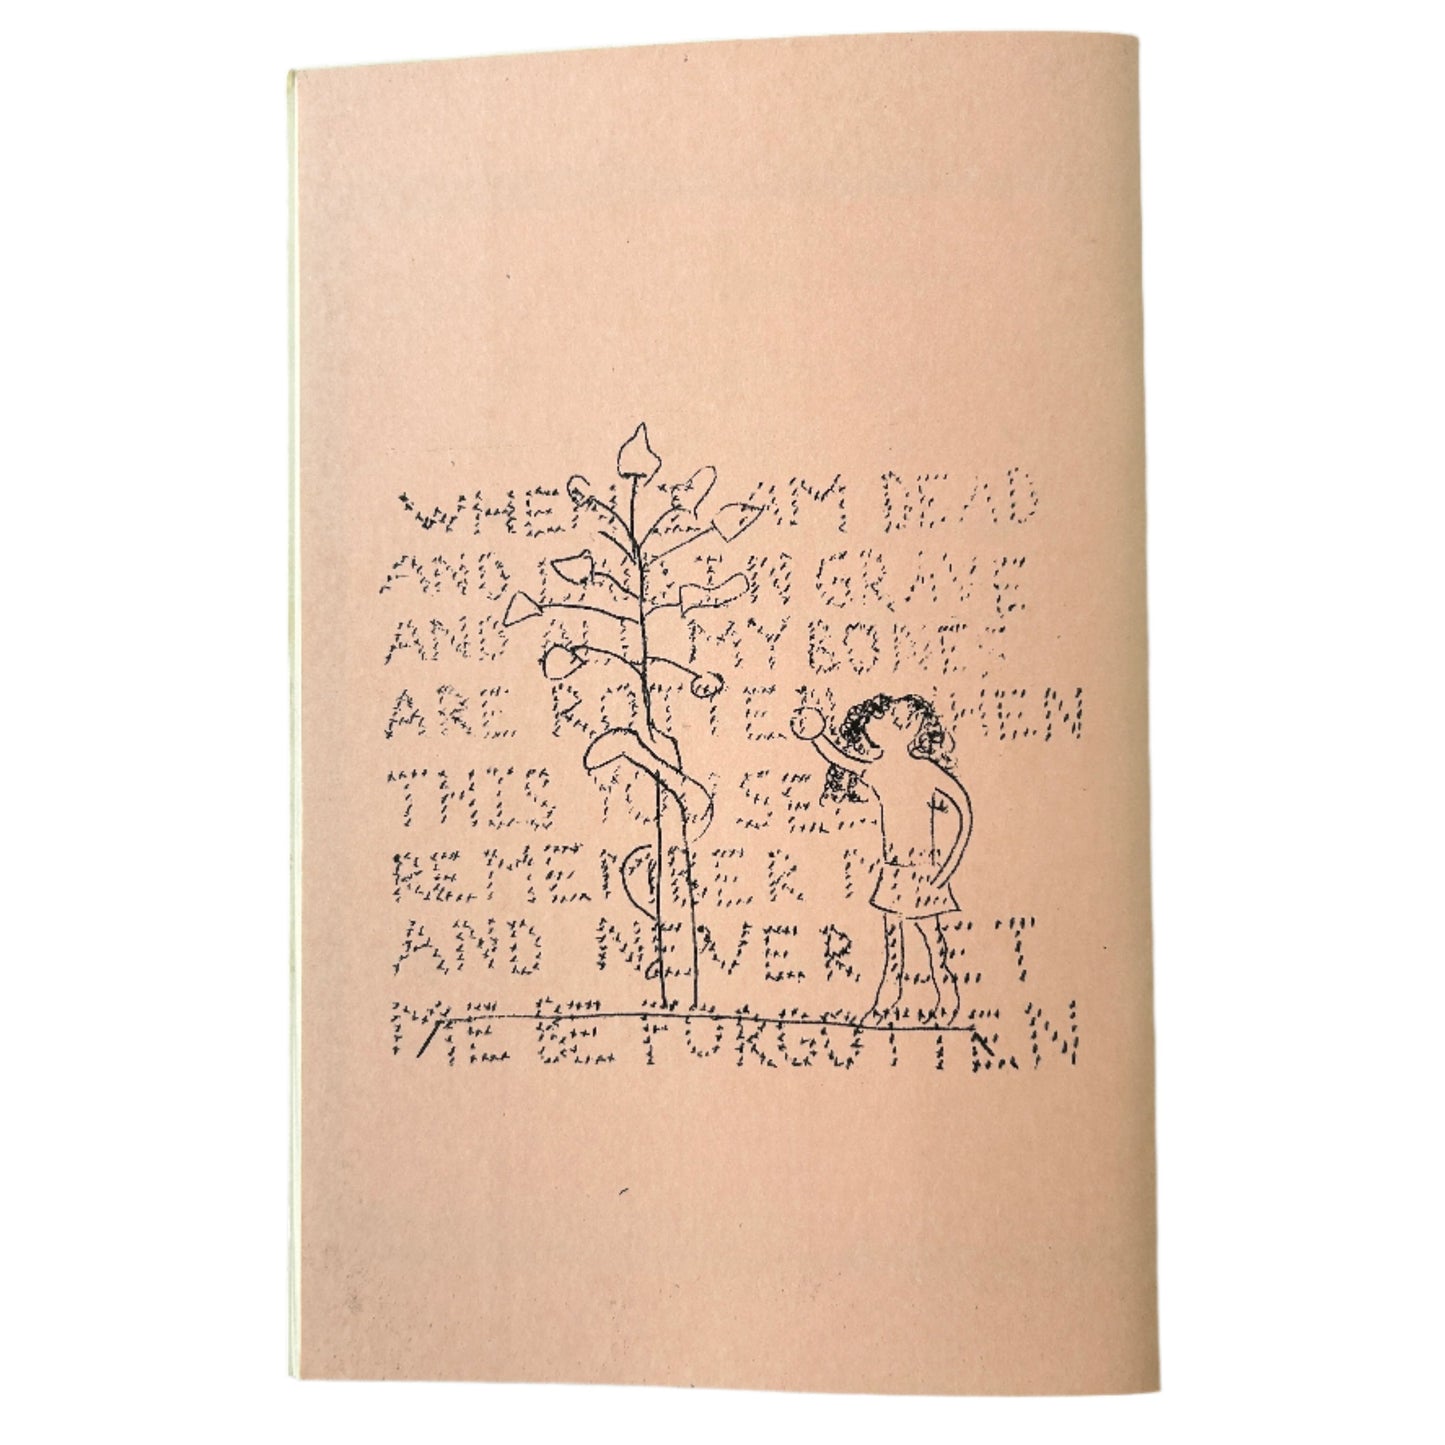 WHEN I AM DEAD
AND LAID IN GRAVE
AND ALL MY BONES
ARE ROTTEN WHEN
THIS YOU SEE
REMEMBER ME
AND NEVER LET
ME BE FORGOTTEN